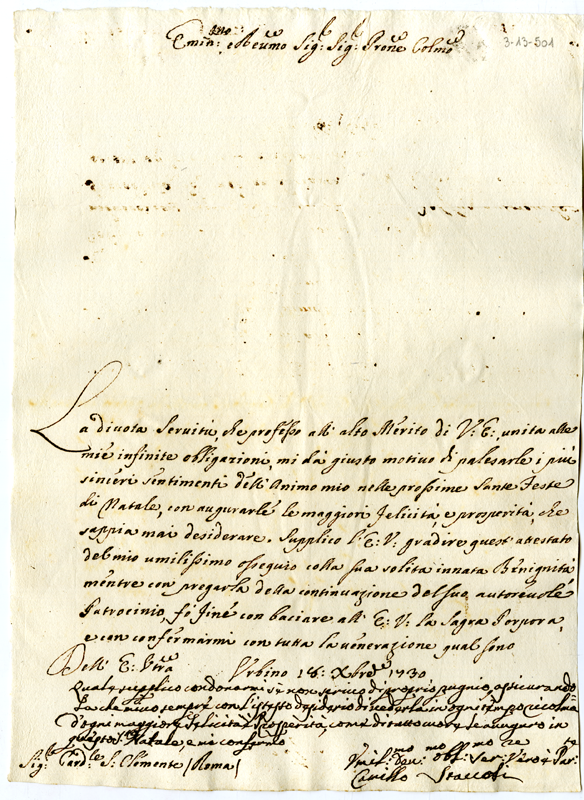 Emin:mo e Reu.mo Sig: Sig: Prone Colmo
3-13-501
La divota Servitù, che professo all' alto Merito di V: E:, unita alle
mie infinite obligazioni, mi dà giusto motivo di palesarle i più
sinceri sentimenti dell' Animo mio nelle prossime Sante Feste
di Natale, con augurarle le maggiori felicità, e prosperità, che
sappia mai desiderare. Supplico l' E: V: gradire quest' attestato
del mio umilissimo ossequio colla sua solita innata Benignità
mentre con pregarla della continuazione del suo autorevole
Patrocinio, fo fine con baciare all' E: V: la Sagra Porpora,
e con confermarmi con tutta la venerazione qual sono
Dell' E: Vra Urbino 18: Xbre 1730
quale supplico condonarmi se non scrivo di proprio pugno, assicurando
la che vivo sempre con l'istesso desiderio di vederla in ogni tempo ricolma
d'ogni maggiore felicità, e Prosperità, come di tutto cuore le auguro in
questo S. Natale, e mi confermo
Sig: Card:le S: Clemente (Roma) Umil:mo Deu:mo Obl:mo Ser:re Vero e Par:
Camillo Staccoli